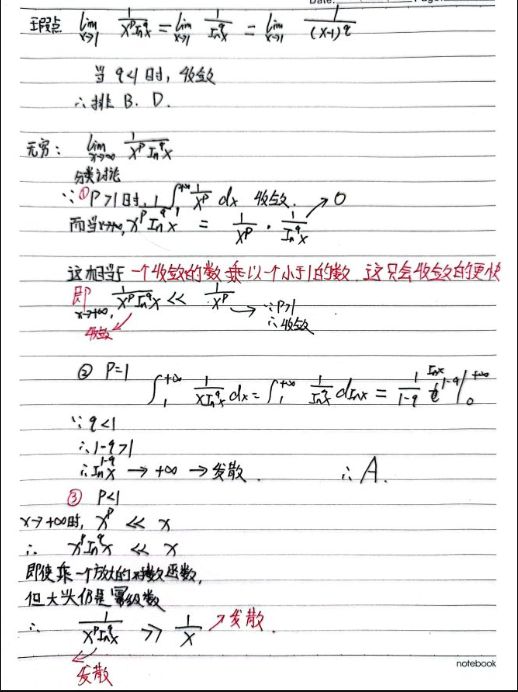 Date:
瑕点 lim x→1 1/(x^p ln^q x) = lim x→1 1/(ln^q x) = lim x→1 1/(x-1)^q
当 q<1 时, 收敛
∴ 排 B. D.
无穷: lim x→∞ 1/(x^p ln^q x)
分类讨论
∵ ① P>1 时, ∫_1^{+∞} 1/x^p dx 收敛.
而当x→∞, x^p ln^q x = 1/x^p · 1/(ln^q x) → 0
这相当于 一个收敛的数 乘以一个小于1的数. 这只会收敛的更快
即 x→+∞, 1/(x^p ln^q x) << 1/x^p → ∵ P>1
收敛 ∴ 收敛
② P=1
∫_1^{+∞} 1/(x ln^q x) dx = ∫_1^{+∞} 1/(ln^q x) d ln x = 1/(1-q) t^{1-q} |_0^{+∞}
ln x
∵ q<1
∴ 1-q>1
∴ ln^{1-q} x → +∞ → 发散. ∴ A.
③ P<1
x→+∞时, x^p << x
∴ x^p ln^q x << x
即使乘一个放大的对数函数,
但大头仍是幂级数
∴ 1/(x^p ln^q x) >> 1/x → 发散.
发散
notebook